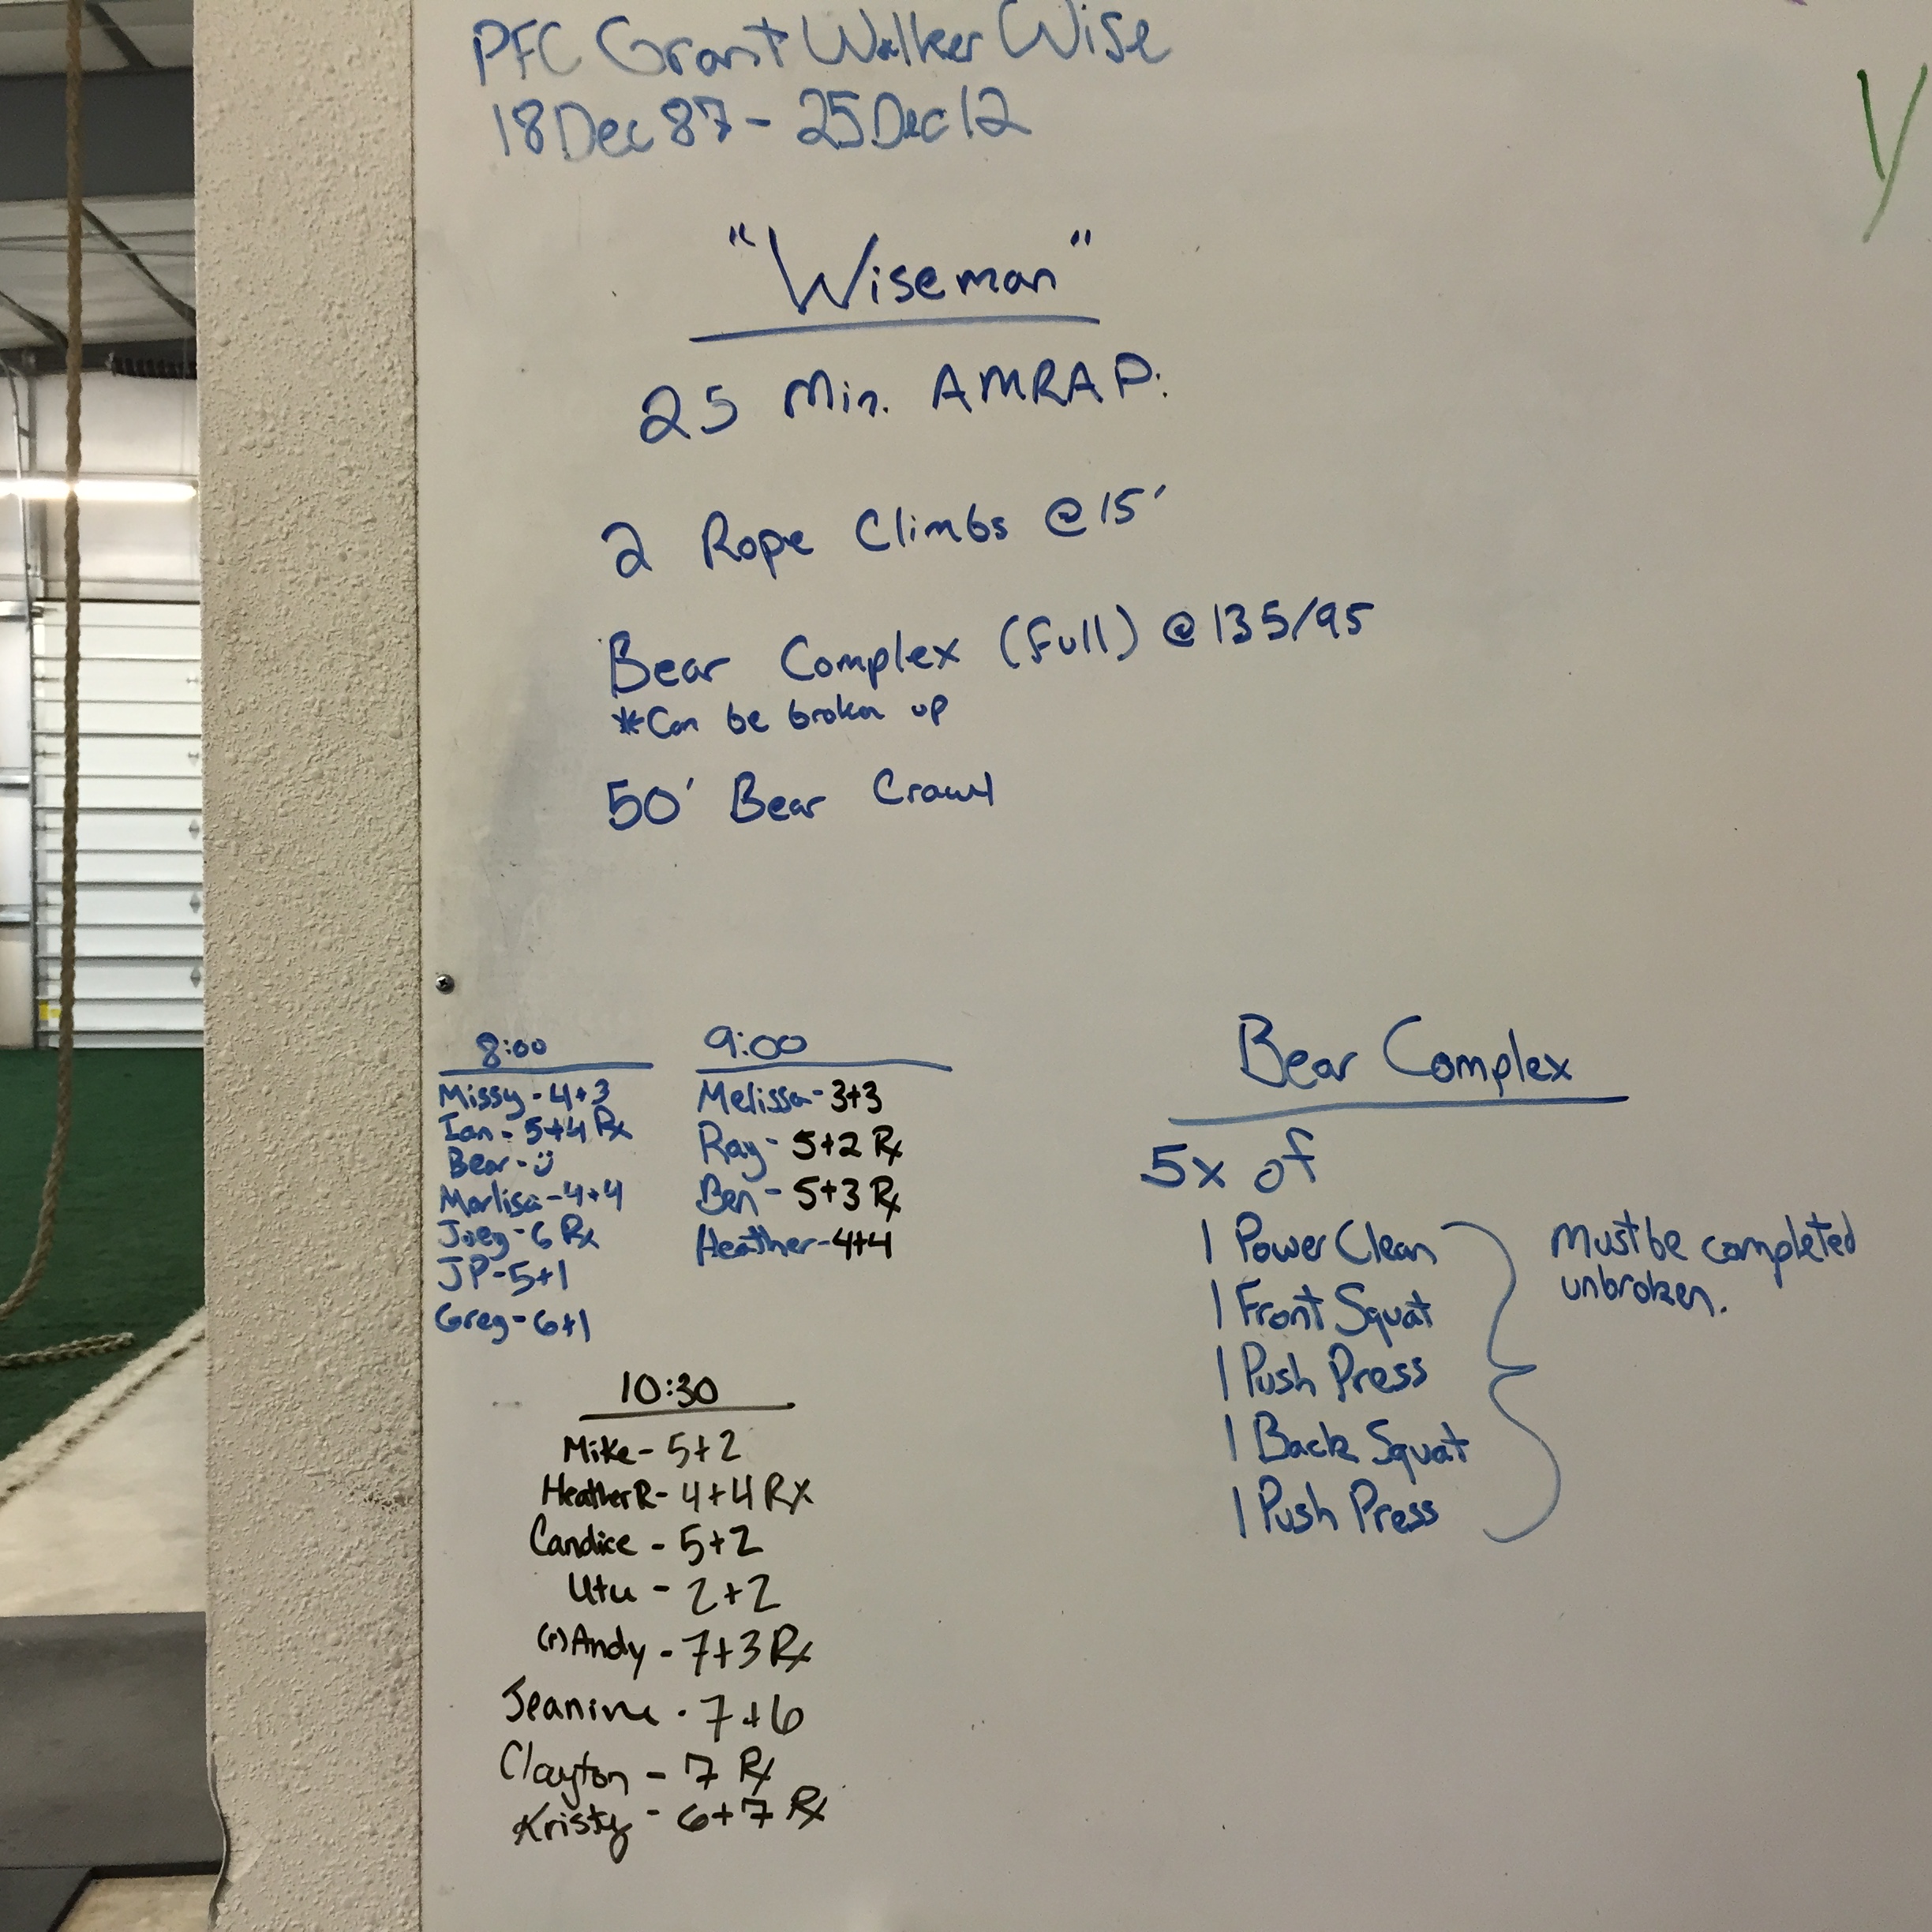 PFC Grant Walker Wise
18 Dec 87 - 25 Dec 12
"Wiseman"
25 Min. AMRAP:
2 Rope Climbs @ 15'
Bear Complex (Full) @ 135/95
*Can be broken up
50' Bear Crawl
8:00
Missy - 4+3
Ian - 5+4 Rx
Bear -
Marlisa - 4+4
- 6 Rx
JP - 5+1
Greg - 6+1
9:00
Melissa - 3+3
Ray - 5+2 Rx
Ben - 5+3 Rx
Heather - 4+4
10:30
Mike - 5+2
Heather R - 4+4 Rx
Candice - 5+2
Utu - 2+2
(r) Andy - 7+3 Rx
Jeanine - 7+6
Clayton - 7 Rx
Kristy - 6+7 Rx
Bear Complex
5x of
1 Power Clean
1 Front Squat
1 Push Press
1 Back Squat
1 Push Press
Must be completed
unbroken.